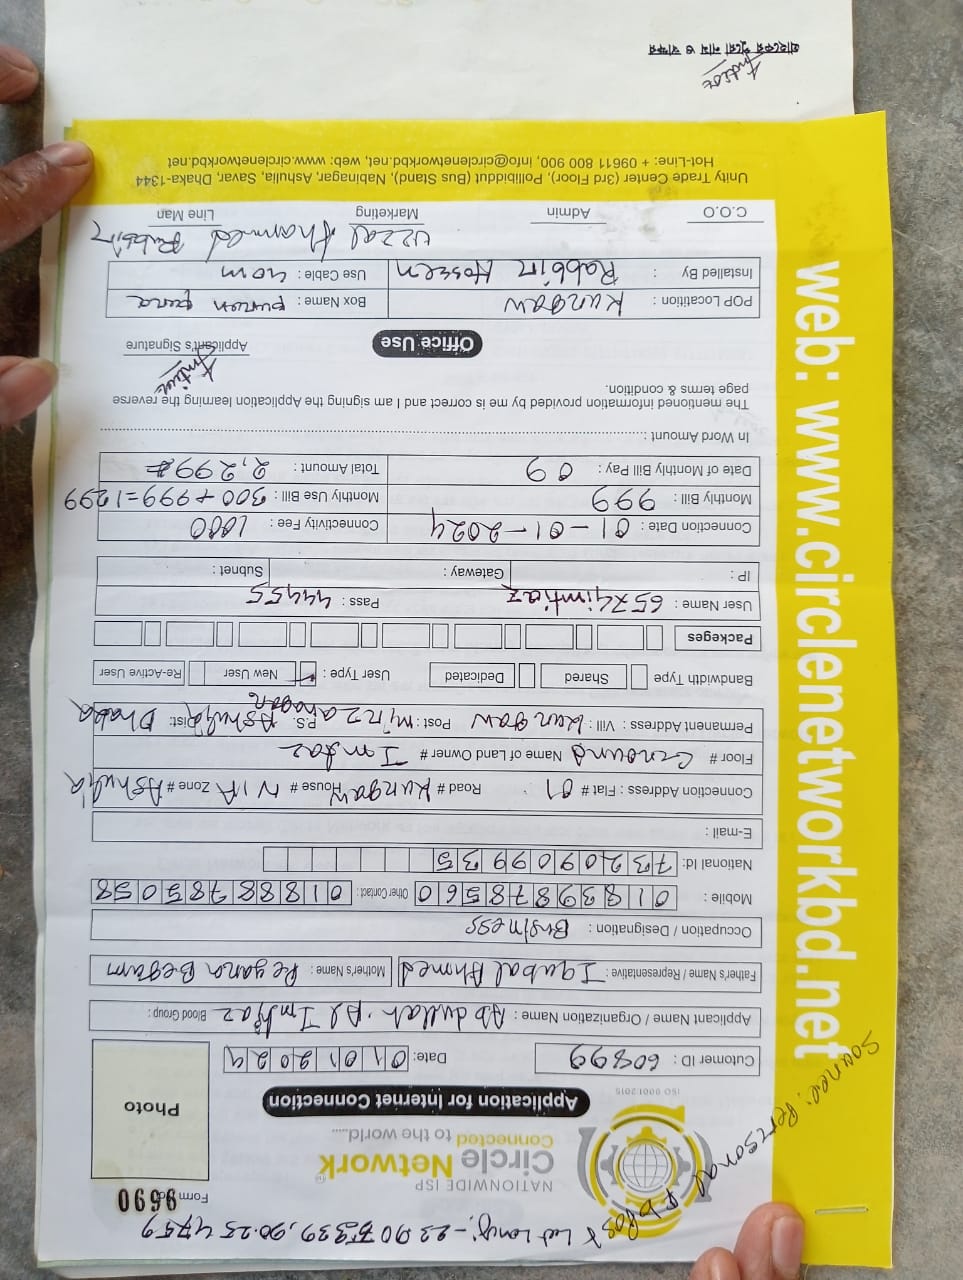 Lat Long:- 23.907339, 90.254759
Source: Personal
Form No 9690
NATIONWIDE ISP
Circle Network
Connected to the world.....
ISO 9001:2015
Photo
Application for Internet Connection
Cutomer ID : 60899 Date: 01 01 2024
Applicant Name / Organization Name : Abdullah Al Imtiaz Blood Group :
Father's Name / Representative : Iqubal Ahmed Mother's Name : Reyana Begum
Occupation / Designation : Business
Mobile : 01339878560 Other Contact : 01888787058
National Id: 7320909935
E-mail :
Connection Address : Flat # 01 Road # Kungaw House # N/A Zone # Ashulia
Floor # Ground Name of Land Owner # Imtiaz
Permanent Address : Vill : Kungaw Post : Mirzanagar P.S. Ashulia Dist: Dhaka
Bandwidth Type Shared Dedicated User Type : New User Re-Active User
Packeges
User Name : 6574imtiaz Pass : 44455
IP : Gateway : Subnet :
Connection Date : 01-01-2024 Connectivity Fee : 1000
Monthly Bill : 999 Monthly Use Bill : 300+999=1299
Date of Monthly Bill Pay : 09 Total Amount : 2,299
In Word Amount :
The mentioned information provided by me is correct and I am signing the Application learning the reverse
page terms & condition.
Applicant's Signature
Office Use
POP Locatition : Kungaw Box Name : puran para
Installed By : Rabbin Hossen Use Cable : 40m
Uzzal Ahammed Rabbin
C.O.O Admin Marketing Line Man
Unity Trade Center (3rd Floor), Pollibiddut (Bus Stand), Nabinagar, Ashulia, Savar, Dhaka-1344
Hot-Line: + 09611 800 900, info@circlenetworkbd.net, web: www.circlenetworkbd.net
web: www.circlenetworkbd.net
গ্রাহকের পুরো নাম ও স্বাক্ষর